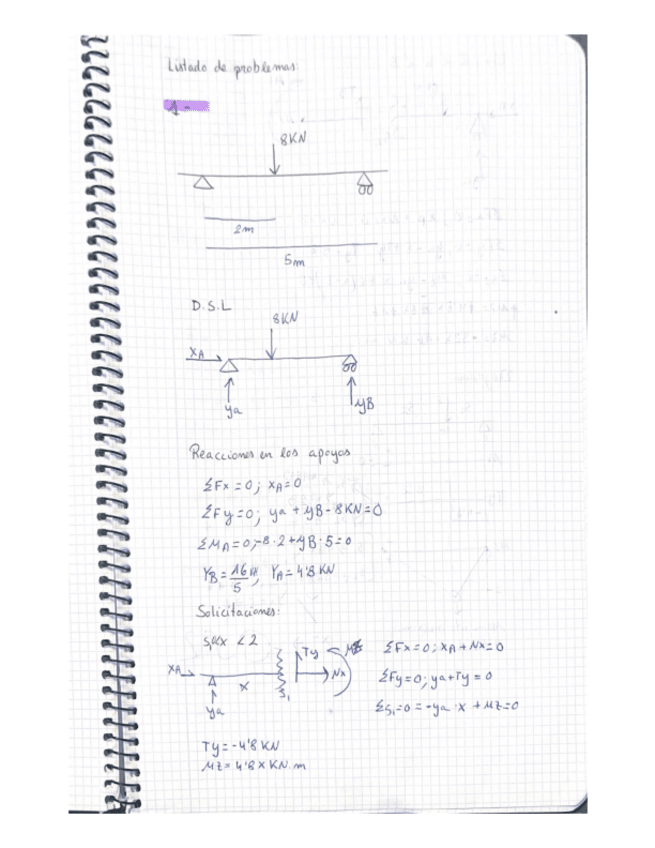 Listado de problemas
1-
8KN
2m
5m
D.S.L
8KN
XA
ya
yB
Reacciones en los apoyos
ΣFx=0; XA=0
ΣFy=0; ya+yB-8KN=0
ΣMA=0;-8·2+yB·5=0
YB=16/5 KN, YA=4'8 KN
Solicitaciones:
S1 0<x<2
XA
ya
x
S1
Ty
Mz
Nx
ΣFx=0; XA+Nx=0
ΣFy=0; ya+Ty=0
ΣS1=0=-ya·x+Mz=0
Ty=-4'8 KN
Mz=4'8x KN.m